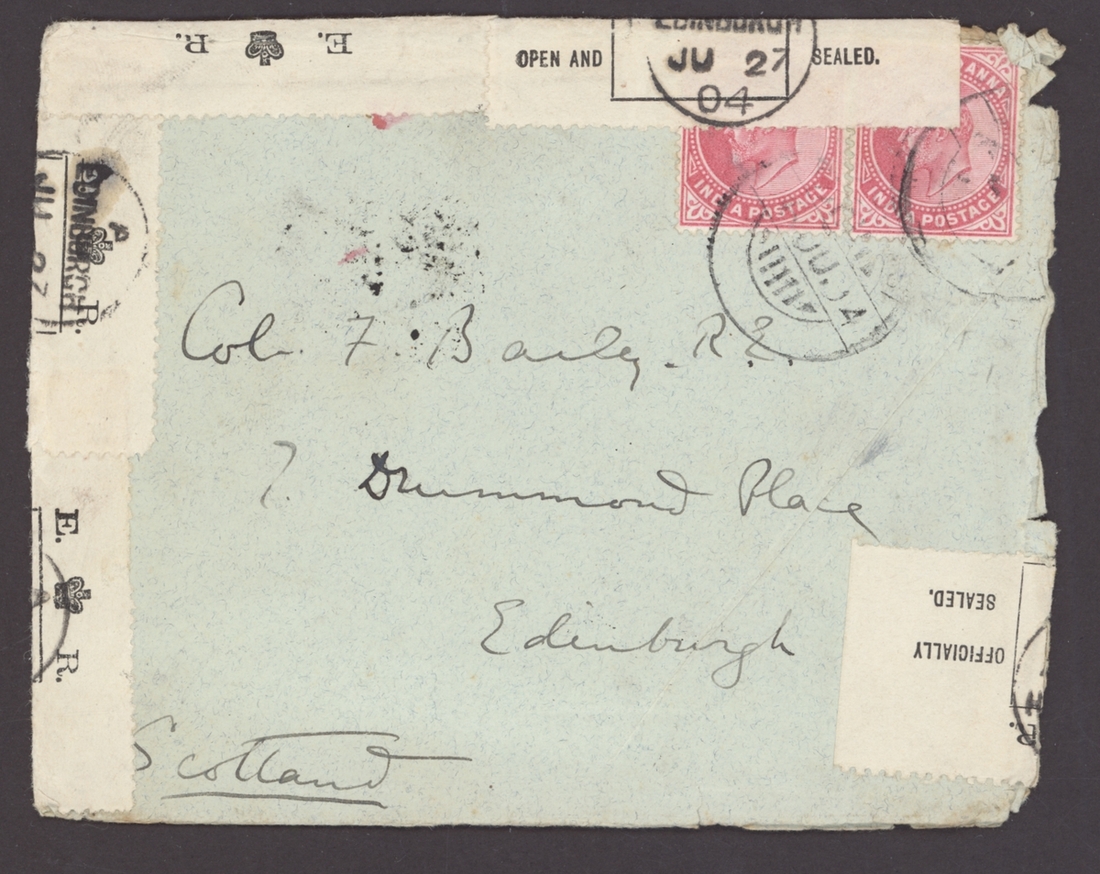 E. R.
OPEN AND SEALED.
EDINBURGH
JU 27
04
ANNA
INDIA POSTAGE
INDIA POSTAGE
EDINBURGH
JU 27
R.
JU.04
Col. F. Bailey. R.E.
7 Drummond Place
Edinburgh
Scotland
E. R.
OFFICIALLY
SEALED.
R.